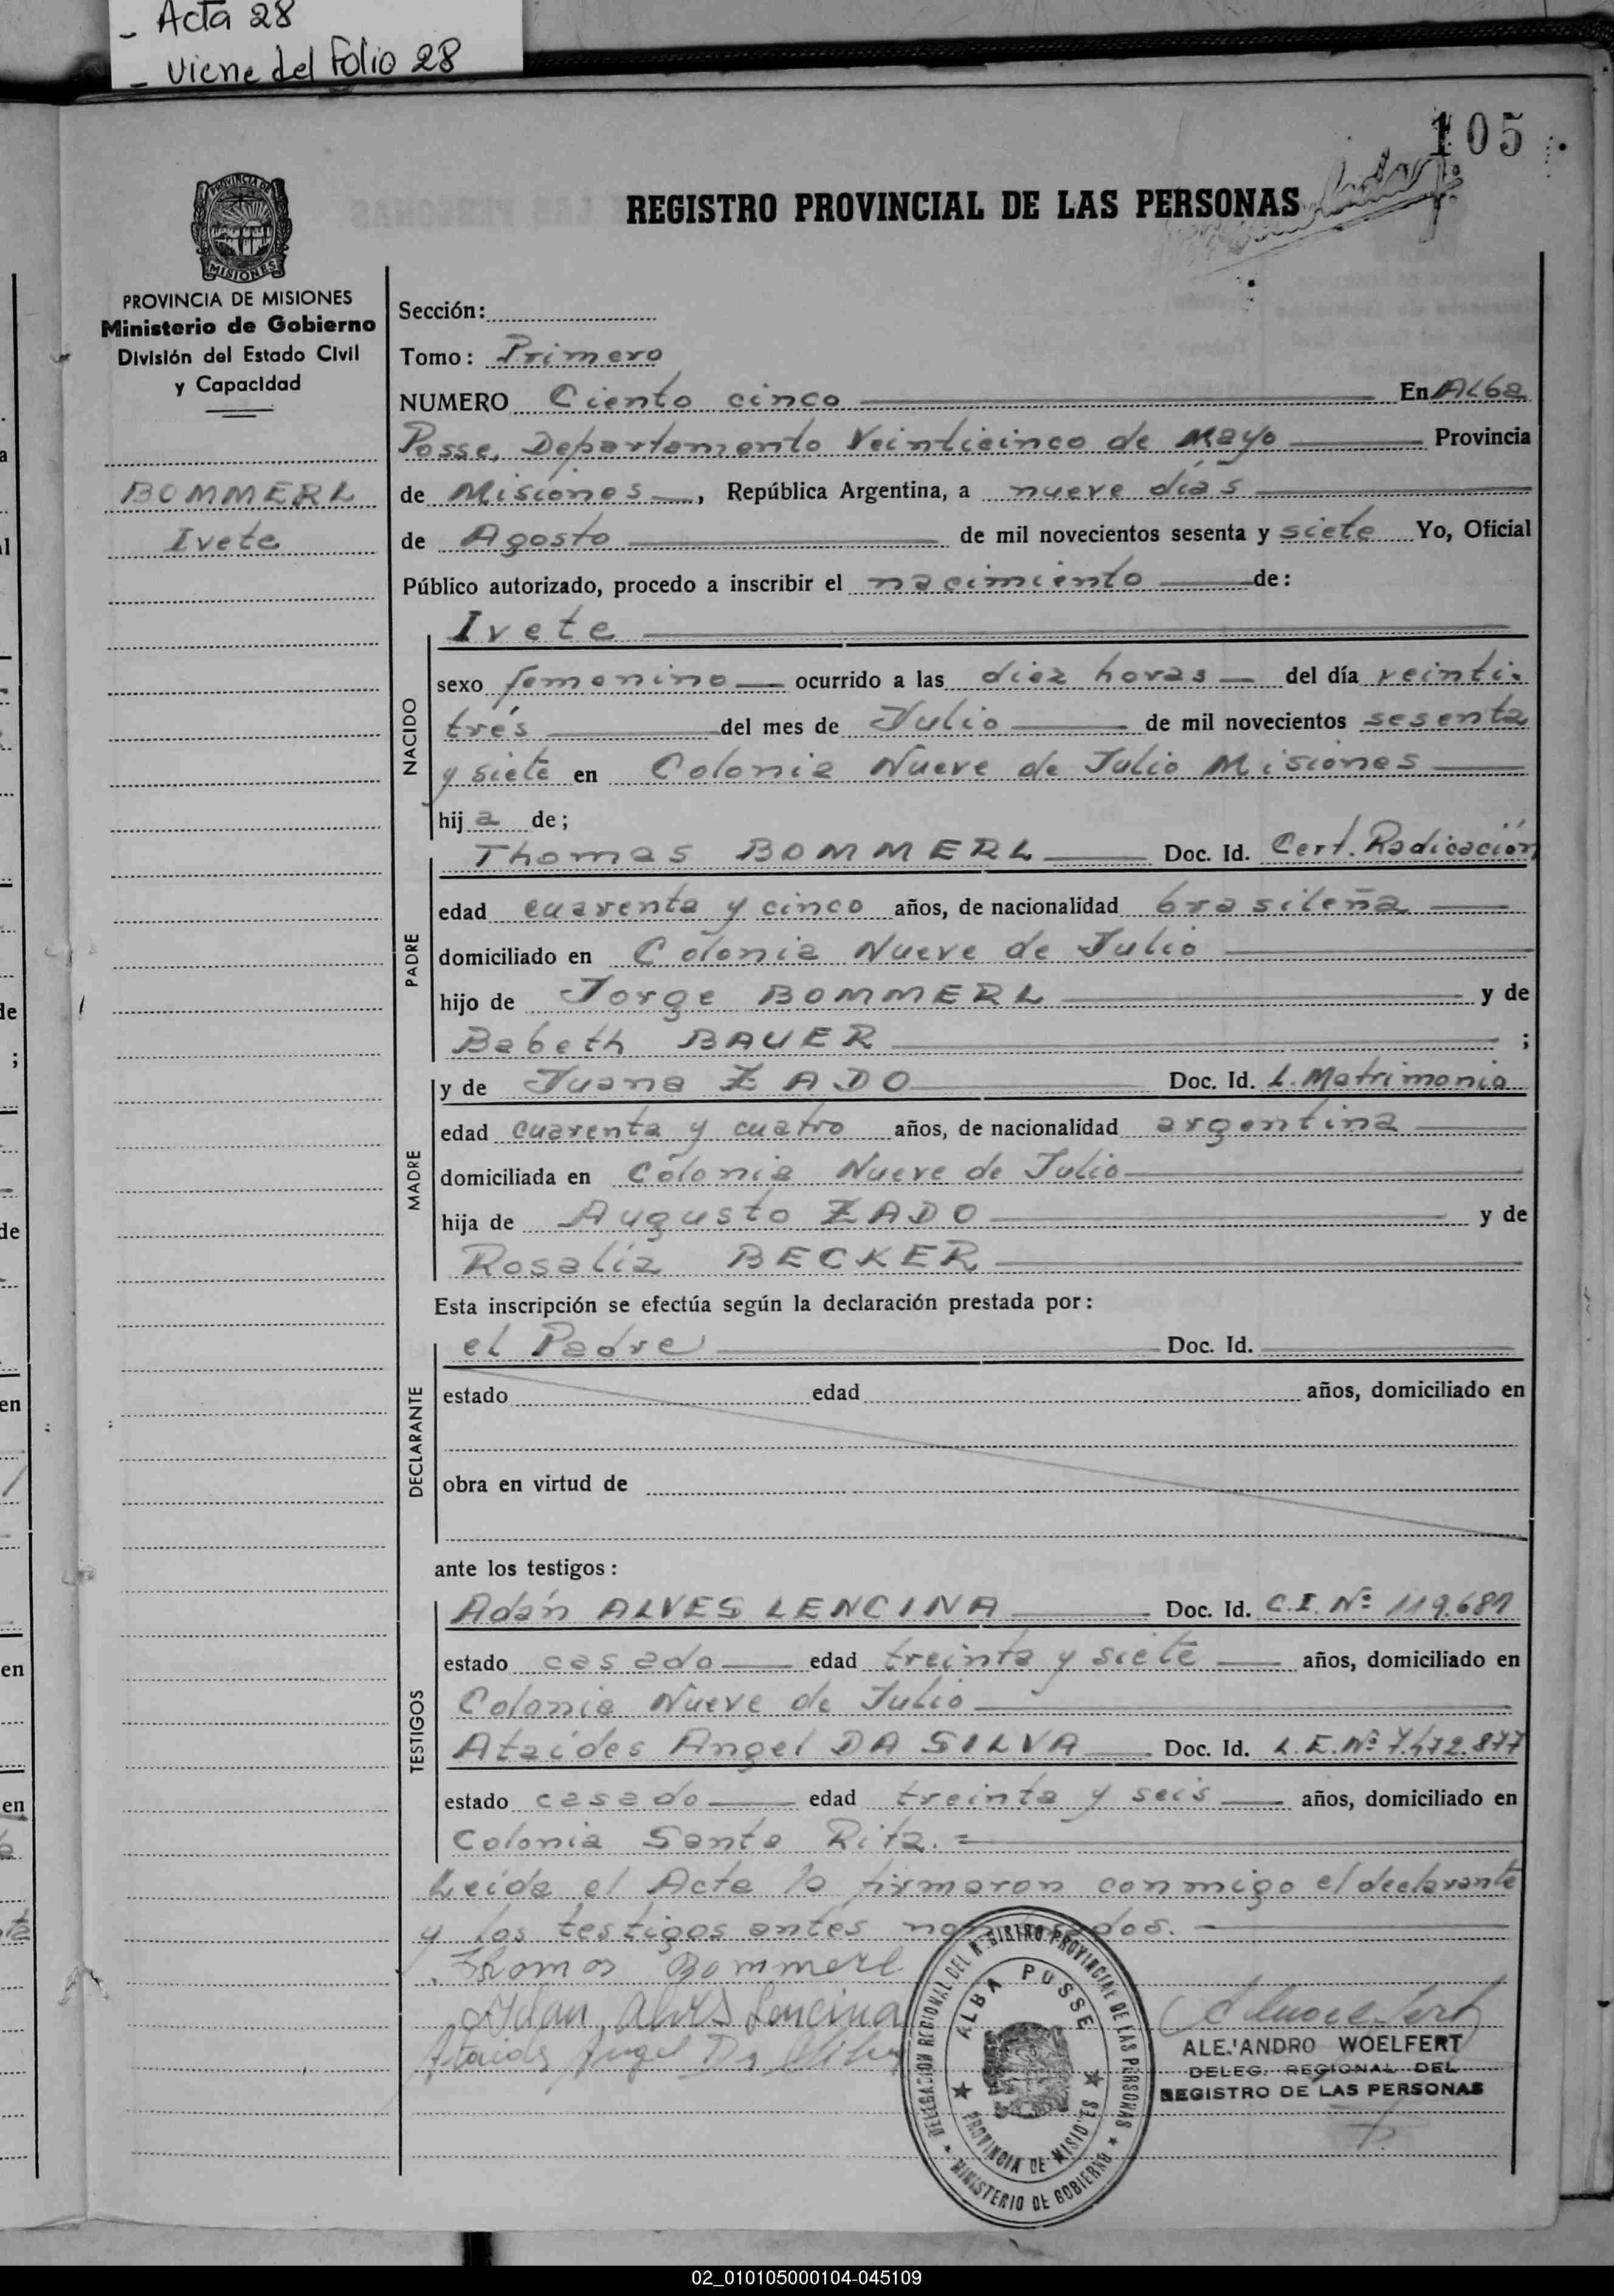 - Acta 28
- Viene del Folio 28
105
REGISTRO PROVINCIAL DE LAS PERSONAS
PROVINCIA DE
MISIONES
PROVINCIA DE MISIONES
Ministerio de Gobierno
División del Estado Civil
y Capacidad
BOMMERL
Ivete
Sección:
Tomo: Primero
NUMERO Ciento cinco En Alba
Posse, Departamento Veinticinco de Mayo Provincia
de Misiones, República Argentina, a nueve días
de Agosto de mil novecientos sesenta y siete Yo, Oficial
Público autorizado, procedo a inscribir el nacimiento de:
NACIDO
Ivete
sexo femenino ocurrido a las diez horas del día veinti-
trés del mes de Julio de mil novecientos sesenta
y siete en Colonia Nueve de Julio Misiones
hij a de;
PADRE
Thomas BOMMERL Doc. Id. Cert. Radicación
edad cuarenta y cinco años, de nacionalidad brasileña
domiciliado en Colonia Nueve de Julio
hijo de Jorge BOMMERL y de
Babeth BAUER ;
MADRE
y de Juana ZADO Doc. Id. L. Matrimonio
edad cuarenta y cuatro años, de nacionalidad argentina
domiciliada en Colonia Nueve de Julio
hija de Augusto ZADO y de
Rosalia BECKER
Esta inscripción se efectúa según la declaración prestada por:
DECLARANTE
el Padre Doc. Id.
estado edad años, domiciliado en
obra en virtud de
ante los testigos:
TESTIGOS
Adán ALVES LENCINA Doc. Id. C.I. Nº 119.681
estado casado edad treinta y siete años, domiciliado en
Colonia Nueve de Julio
Ataides Angel DA SILVA Doc. Id. L.E. Nº 7.472.877
estado casado edad treinta y seis años, domiciliado en
Colonia Santa Rita.=
Leida el Acta la firmaron conmigo el declarante
y los testigos antes nombrados.
Thomas Bommerl
Adan Alves Lencina
Ataides Angel Da Silva
DELEGACION REGIONAL DEL REGISTRO PROVINCIAL DE LAS PERSONAS
ALBA POSSE
PROVINCIA DE MISIONES
MINISTERIO DE GOBIERNO
ALEJANDRO WOELFERT
DELEG. REGIONAL DEL
REGISTRO DE LAS PERSONAS
02_010105000104-045109